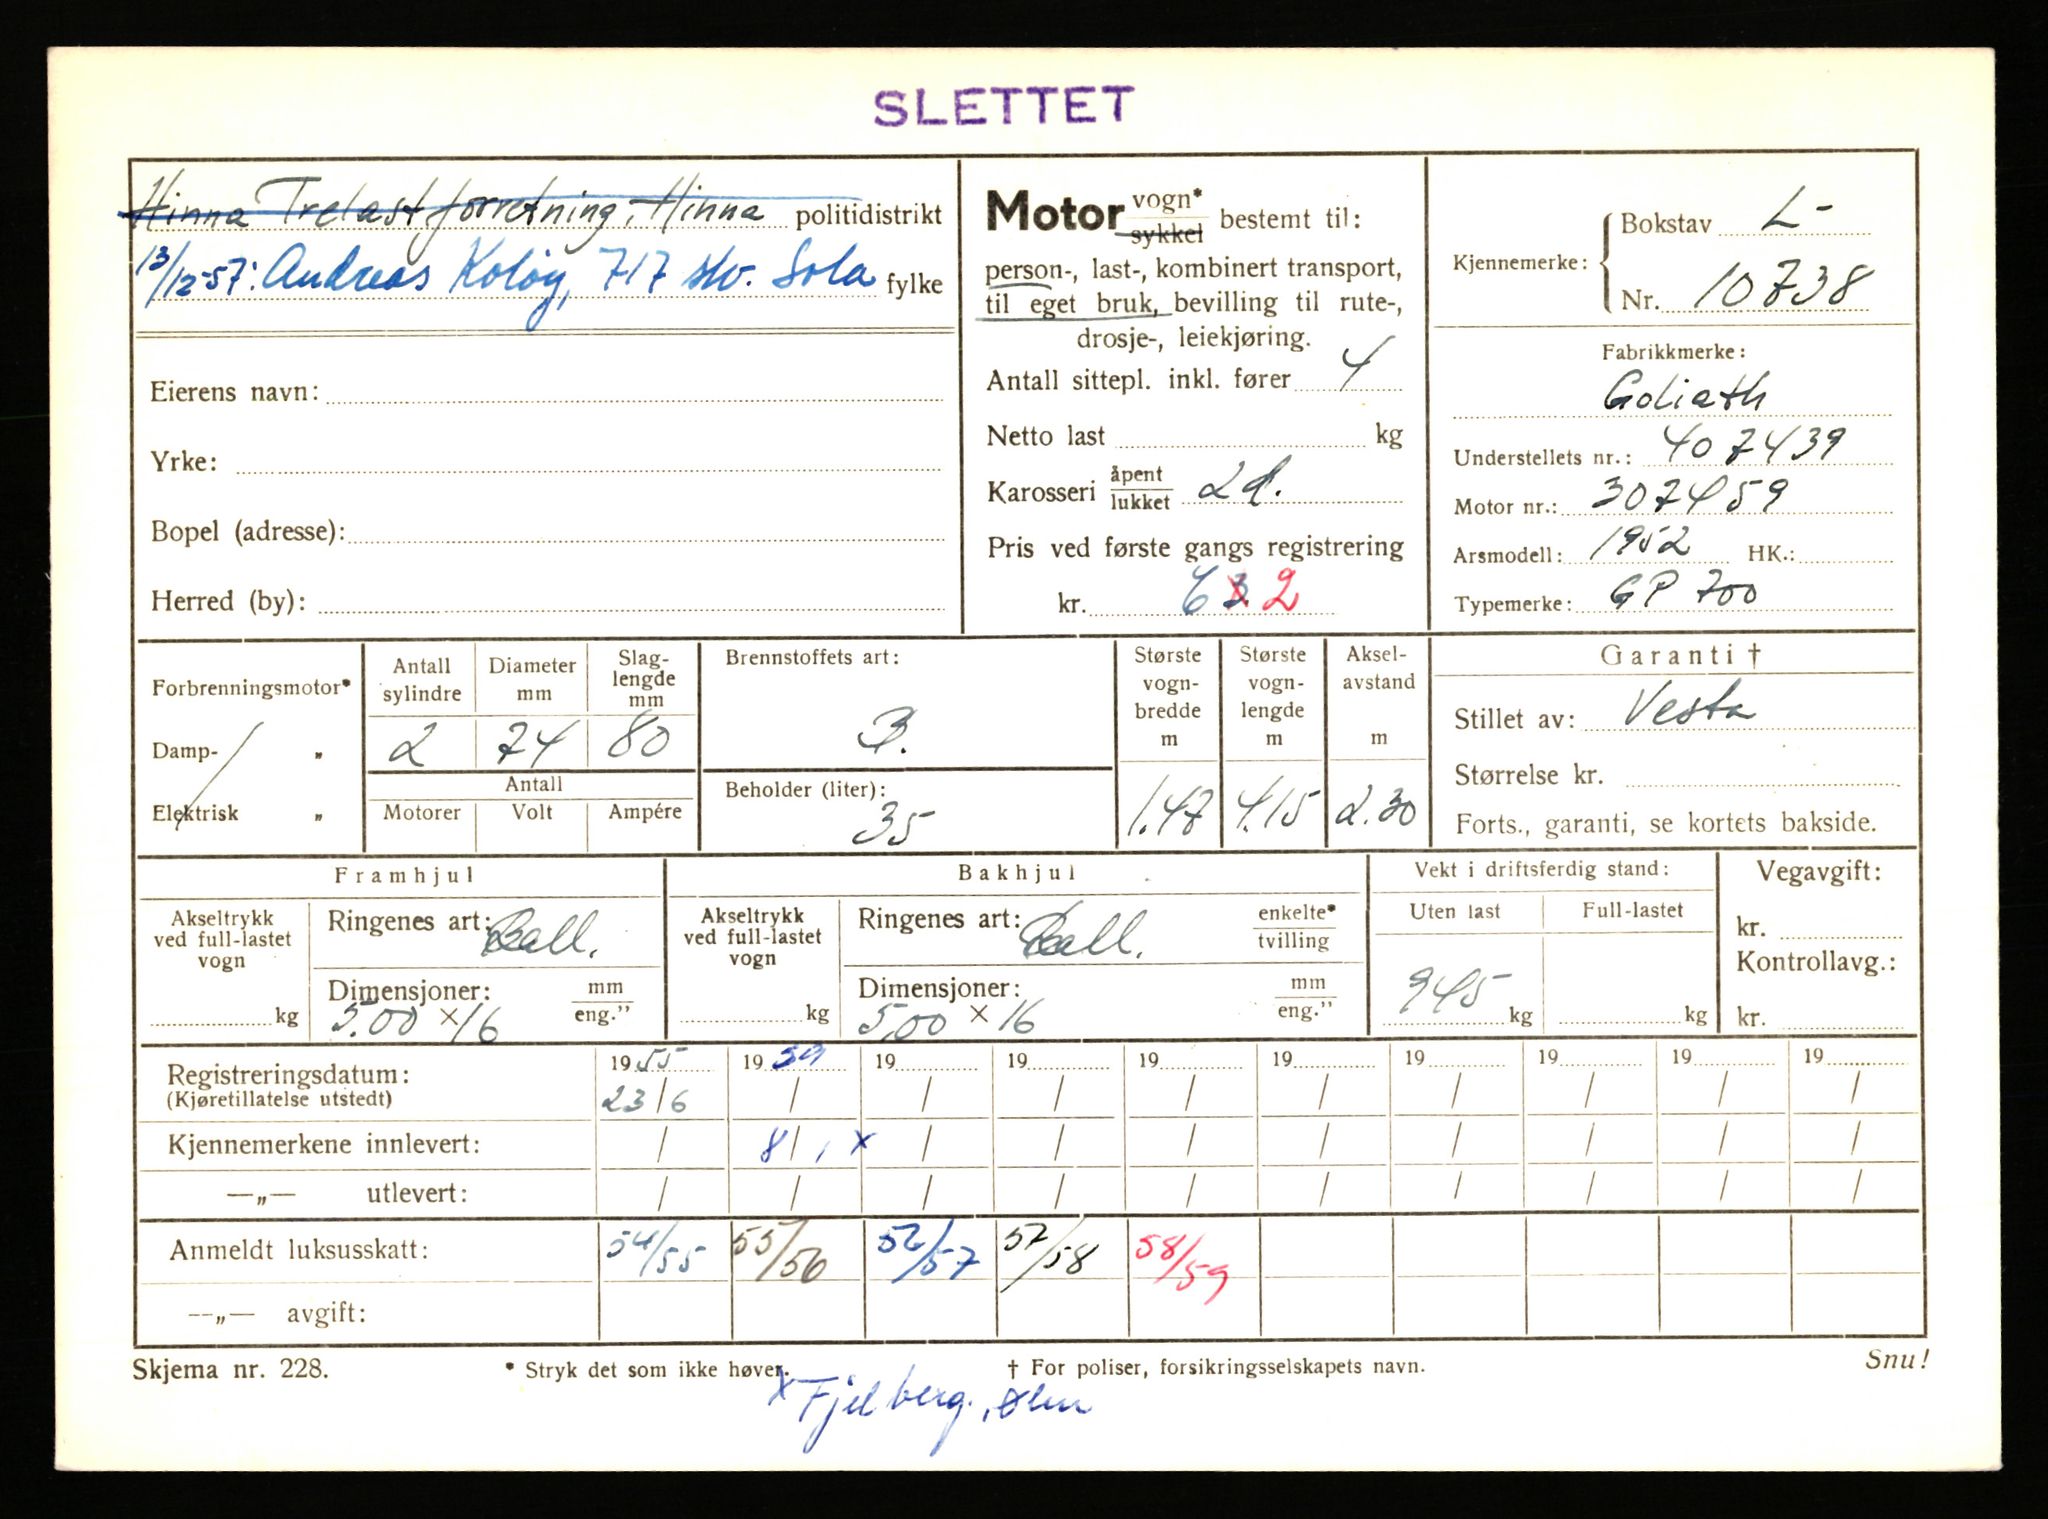 SLETTET
Hinna Trelastforretning, Hinna politidistrikt
13/12-57: Andreas Koløy, 717 skv. Sola fylke
Eierens navn:
Yrke:
Bopel (adresse):
Herred (by):
Motor vogn* sykkel bestemt til:
person-, last-, kombinert transport,
til eget bruk, bevilling til rute-,
drosje-, leiekjøring.
Antall sittepl. inkl. fører 4
Netto last kg
Karosseri åpent lukket 2d.
Pris ved første gangs registrering
kr. 632
Kjennemerke: Bokstav L-
Nr. 10738
Fabrikkmerke:
Goliath
Understellets nr.: 407439
Motor nr.: 307459
Arsmodell: 1952 HK.:
Typemerke: GP 700
Forbrenningsmotor*
Damp- „
Elektrisk „
Antall sylindre Diameter mm Slag-lengde mm
2 74 80
Antall
Motorer Volt Ampére
Brennstoffets art:
B.
Beholder (liter):
35
Største vogn-bredde m Største vogn-lengde m Aksel-avstand m
1.47 4.15 2.30
Garanti †
Stillet av: Vesta
Størrelse kr.
Forts., garanti, se kortets bakside.
Framhjul
Akseltrykk ved full-lastet vogn
kg
Ringenes art: Ball.
Dimensjoner: mm eng."
5.00 × 16
Bakhjul
Akseltrykk ved full-lastet vogn
kg
Ringenes art: Ball. enkelte* tvilling
Dimensjoner: mm eng."
5.00 × 16
Vekt i driftsferdig stand:
Uten last Full-lastet
945 kg kg
Vegavgift:
kr.
Kontrollavg.:
kr.
Registreringsdatum: 1955 1959 19 19 19 19 19 19 19 19
(Kjøretillatelse utstedt) 23/6 / / / / / / / / /
Kjennemerkene innlevert: / 8/1 x / / / / / / / /
—„— utlevert: / / / / / / / / / /
Anmeldt luksusskatt: 54/55 55/56 56/57 57/58 58/59
—„— avgift:
Skjema nr. 228. * Stryk det som ikke høver. † For poliser, forsikringsselskapets navn. Snu!
x Fjelberg, Ølen